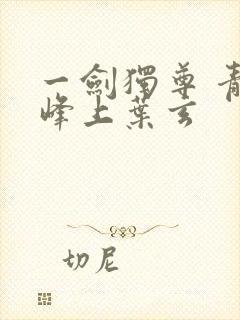 一劍獨尊 青
峰上葉玄
切尼